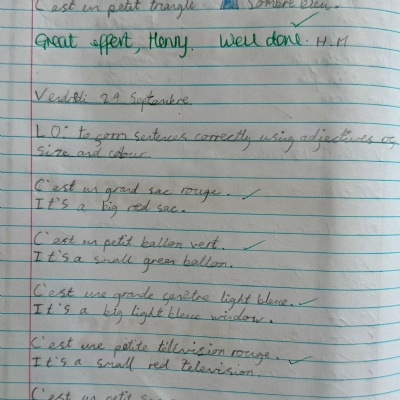 C'est un petit triangle sombre bleu.
Great effort, Henry. Well done. H.M
Vendrdi 29 Septembre
LO: to form sentences correctly using adjectives of
size and colour
C'est un grand sac rouge.
It's a big red sac.
C'est un petit ballon vert.
It's a small green ballon.
C'est une grande fenêtre light bleue.
It's a big light bleue window.
C'est une petite télévision rouge.
It's a small red television.
C'est un petit